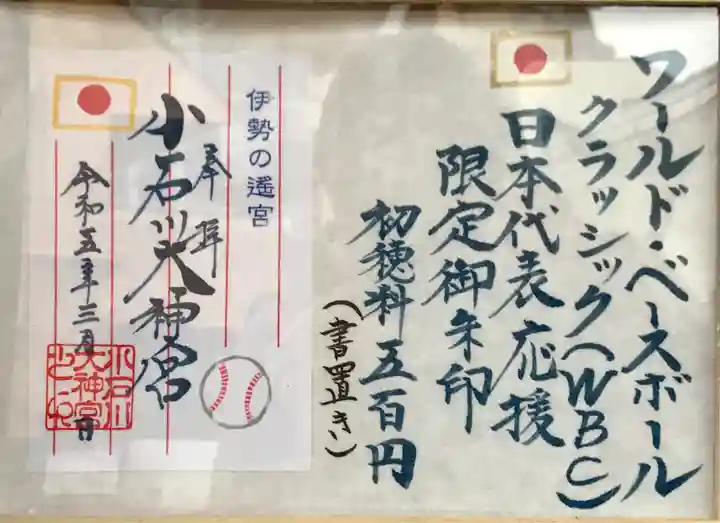 ワールド・ベースボール
クラッシック(WBC)
日本代表応援
限定御朱印
初穂料五百円
(書置き)
伊勢の遙宮
奉拝
小石川大神宮
令和五年三月 日
小石川
大神宮